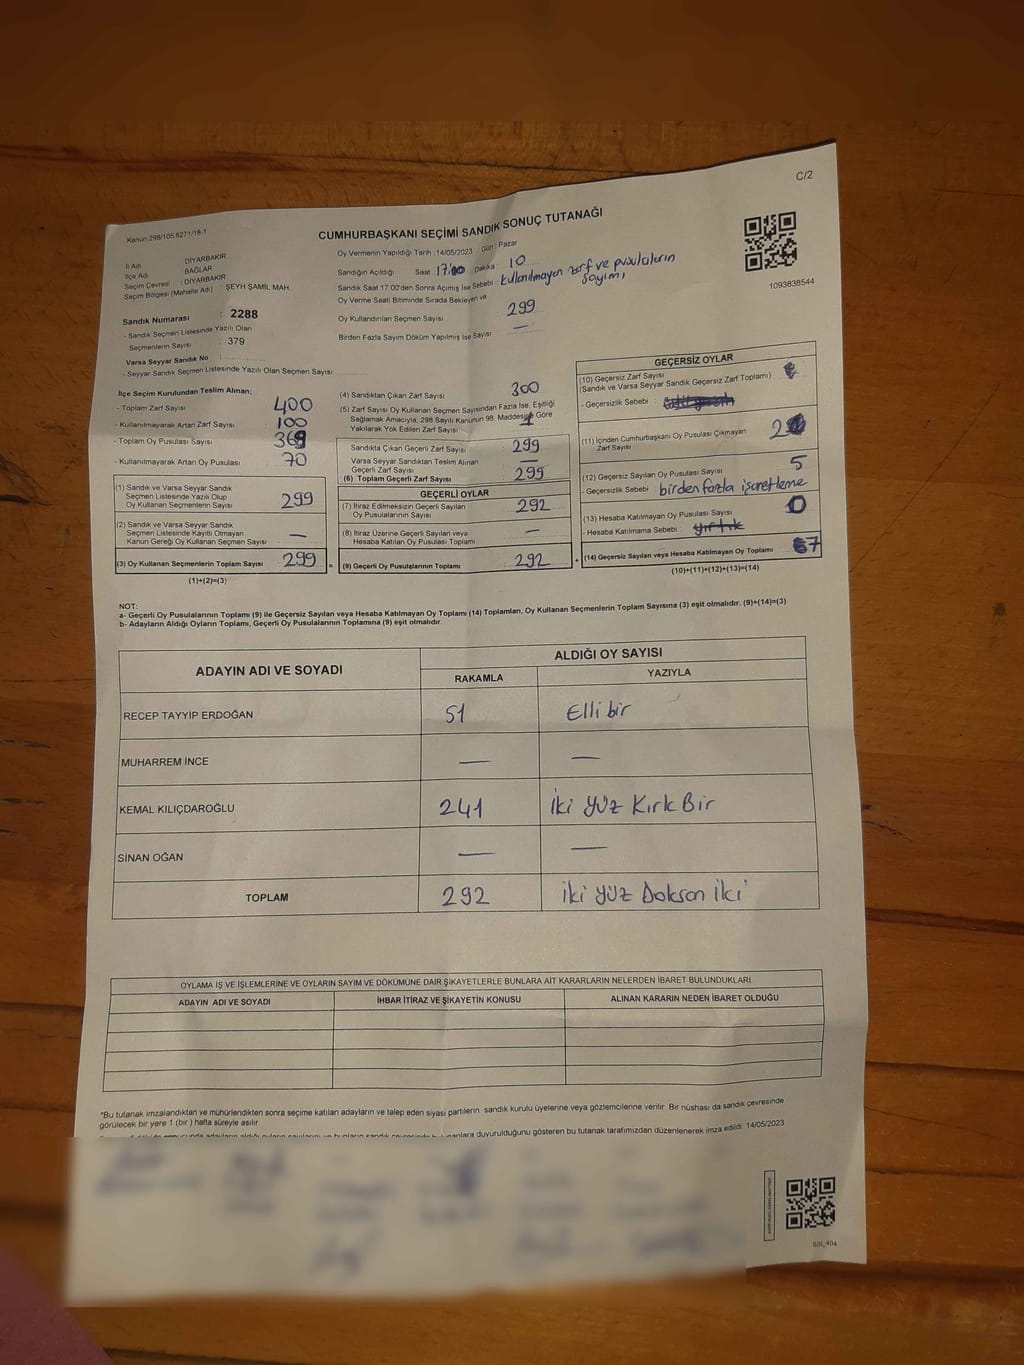 C/2
Kanun:298/105.6271/18-1
CUMHURBAŞKANI SEÇİMİ SANDIK SONUÇ TUTANAĞI
İl Adı : DİYARBAKIR
İlçe Adı : BAĞLAR
Seçim Çevresi : DİYARBAKIR
Seçim Bölgesi (Mahalle Adı) : ŞEYH ŞAMİL MAH.
Oy Vermenin Yapıldığı Tarih :14/05/2023 Gün : Pazar
Sandığın Açıldığı Saat 17:00 Dakika : 10
Sandık Saat 17:00'den Sonra Açılmış İse Sebebi : kullanılmayan zarf ve pusulaların sayımı
Oy Verme Saati Bitiminde Sırada Bekleyen ve
Oy Kullandırılan Seçmen Sayısı 299
Birden Fazla Sayım Döküm Yapılmış İse Sayısı : —
1093838544
Sandık Numarası : 2288
- Sandık Seçmen Listesinde Yazılı Olan
Seçmenlerin Sayısı : 379
Varsa Seyyar Sandık No :
- Seyyar Sandık Seçmen Listesinde Yazılı Olan Seçmen Sayısı:
İlçe Seçim Kurulundan Teslim Alınan;
- Toplam Zarf Sayısı : 400
- Kullanılmayarak Artan Zarf Sayısı : 100
- Toplam Oy Pusulası Sayısı : 369
- Kullanılmayarak Artan Oy Pusulası : 70
(1) Sandık ve Varsa Seyyar Sandık
Seçmen Listesinde Yazılı Olup
Oy Kullanan Seçmenlerin Sayısı : 299
(2) Sandık ve Varsa Seyyar Sandık
Seçmen Listesinde Kayıtlı Olmayan
Kanun Gereği Oy Kullanan Seçmen Sayısı : —
(3) Oy Kullanan Seçmenlerin Toplam Sayısı : 299
(1)+(2)=(3)
(4) Sandıktan Çıkan Zarf Sayısı : 300
(5) Zarf Sayısı Oy Kullanan Seçmen Sayısından Fazla İse, Eşitliği
Sağlamak Amacıyla; 298 Sayılı Kanunun 98. Maddesine Göre
Yakılarak Yok Edilen Zarf Sayısı : 1
Sandıkta Çıkan Geçerli Zarf Sayısı : 299
Varsa Seyyar Sandıktan Teslim Alınan
Geçerli Zarf Sayısı : —
(6) Toplam Geçerli Zarf Sayısı : 299
GEÇERLİ OYLAR
(7) İtiraz Edilmeksizin Geçerli Sayılan
Oy Pusulalarının Sayısı : 292
(8) İtiraz Üzerine Geçerli Sayılan veya
Hesaba Katılan Oy Pusulası Toplamı : —
(9) Geçerli Oy Pusulalarının Toplamı : 292
GEÇERSİZ OYLAR
(10) Geçersiz Zarf Sayısı
(Sandık ve Varsa Seyyar Sandık Geçersiz Zarf Toplamı) :
- Geçersizlik Sebebi :
(11) İçinden Cumhurbaşkanı Oy Pusulası Çıkmayan
Zarf Sayısı : 2
(12) Geçersiz Sayılan Oy Pusulası Sayısı : 5
- Geçersizlik Sebebi birden fazla işaretleme
(13) Hesaba Katılmayan Oy Pusulası Sayısı : 0
- Hesaba Katılmama Sebebi : yırtık
(14) Geçersiz Sayılan veya Hesaba Katılmayan Oy Toplamı : 7
(10)+(11)+(12)+(13)=(14)
NOT:
a- Geçerli Oy Pusulalarının Toplamı (9) ile Geçersiz Sayılan veya Hesaba Katılmayan Oy Toplamı (14) Toplamları, Oy Kullanan Seçmenlerin Toplam Sayısına (3) eşit olmalıdır. (9)+(14)=(3)
b- Adayların Aldığı Oyların Toplamı, Geçerli Oy Pusulalarının Toplamına (9) eşit olmalıdır.
ADAYIN ADI VE SOYADI ALDIĞI OY SAYISI
RAKAMLA YAZIYLA
RECEP TAYYİP ERDOĞAN 51 Elli bir
MUHARREM İNCE — —
KEMAL KILIÇDAROĞLU 241 İki yüz Kırk Bir
SİNAN OĞAN — —
TOPLAM 292 İki yüz Doksan İki
OYLAMA İŞ VE İŞLEMLERİNE VE OYLARIN SAYIM VE DÖKÜMÜNE DAİR ŞİKAYETLERLE BUNLARA AİT KARARLARIN NELERDEN İBARET BULUNDUKLARI
ADAYIN ADI VE SOYADI İHBAR İTİRAZ VE ŞİKAYETİN KONUSU ALINAN KARARIN NEDEN İBARET OLDUĞU
*Bu tutanak imzalandıktan ve mühürlendikten sonra seçime katılan adayların ve talep eden siyasi partilerin sandık kurulu üyelerine veya gözlemcilerine verilir. Bir nüshası da sandık çevresinde
görülecek bir yere 1 (bir ) hafta süreyle asılır.
duyurulduğunu gösteren bu tutanak tarafımızdan düzenlenerek imza edildi. 14/05/2023
SSI_404